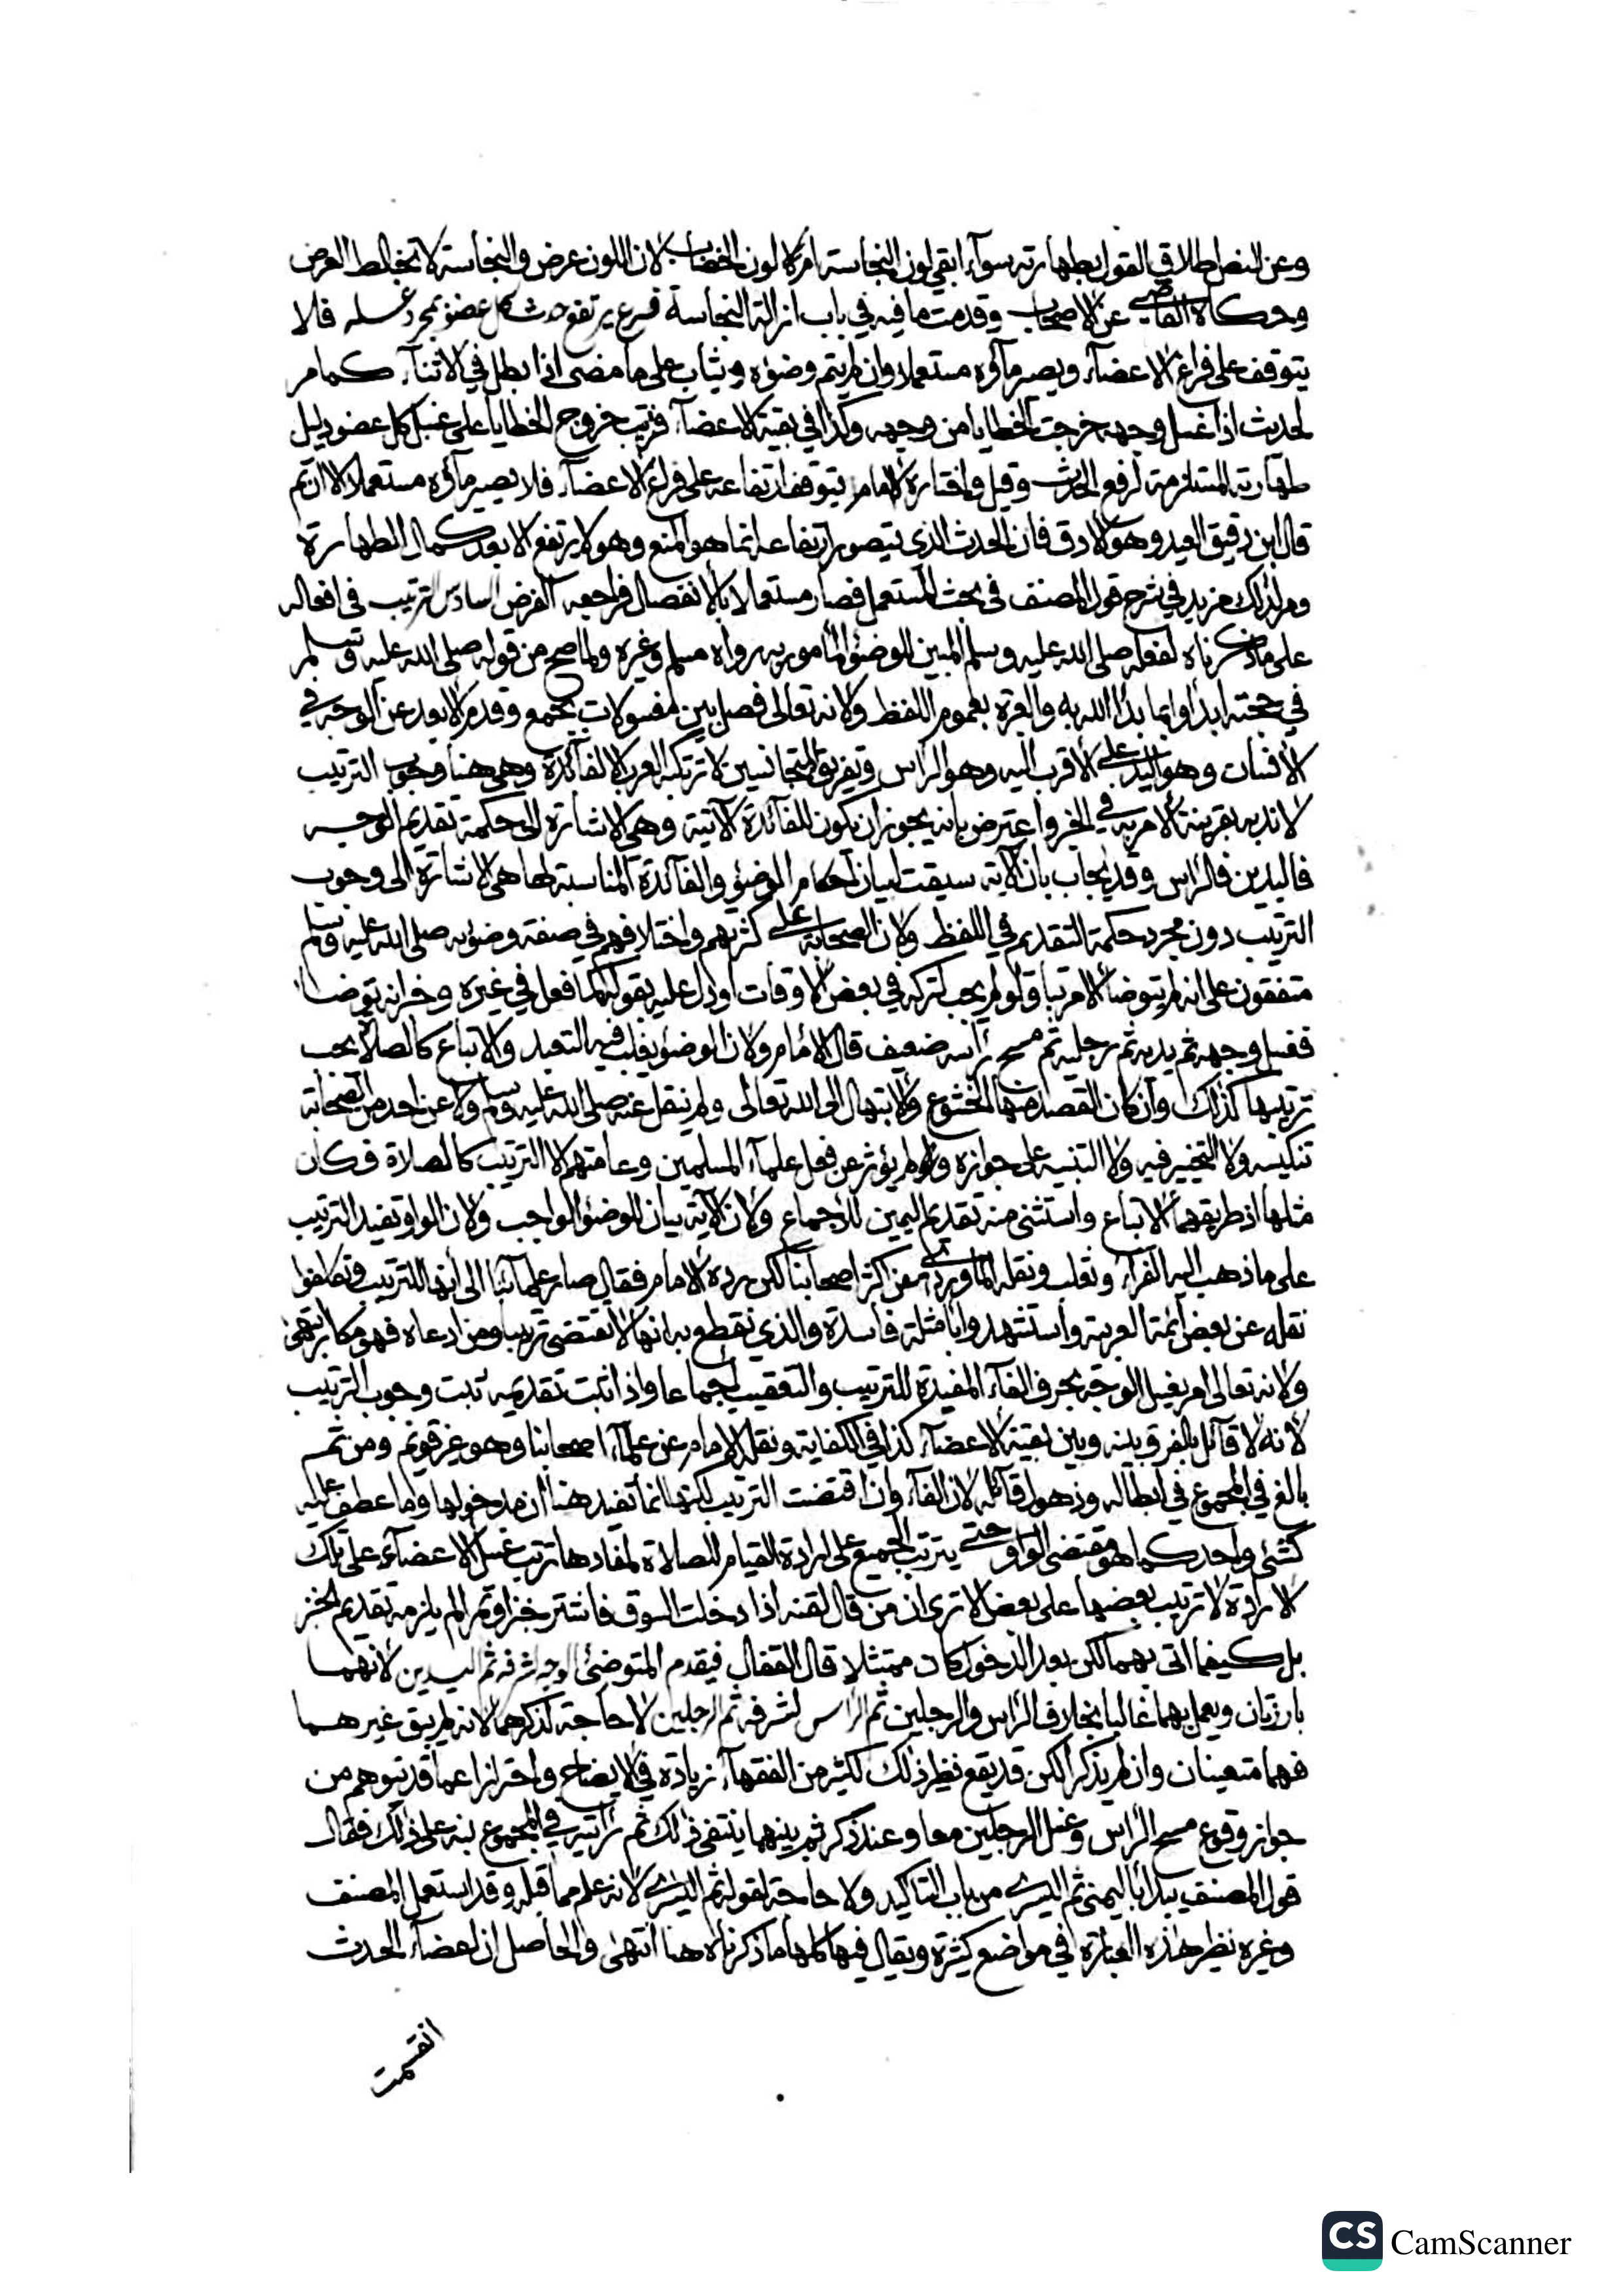 وعن النص اطلاق القول بطهارته سوآء ابقي لون النجاسة ام لا لون الخضاب لان اللون عرض والنجاسة لا تخالط العرض
وحكاه القاضي عن الاصحاب وقدمت ما فيه في باب ازالة النجاسة فرع يرتفع حدث كل عضو بمجرد غسله فلا
يتوقف على فراغ الاعضآء ويصير مآؤه مستعملا وان لم يتم وضؤه ويثاب على ما مضى اذا بطل في الاثنآء كما مر
لحديث اذا غسل وجهه خرجت الخطايا من وجهه وكذا في بقية الاعضآء فرتب خروج الخطايا على غسل كل عضو دليل
طهارته المستلزمة لرفع الحدث وقيل واختاره الامام يتوقف ارتفاعه على فراغ الاعضآء فلا يصير مآؤه مستعملا الا ان تم
قال ابن دقيق العيد وهو الادق فان الحدث الذي يتصور ارتفاعه انما هو المنع وهو لا يرتفع الا بعد كمال الطهارة
ومر لذلك مزيد في شرح قول المصنف في بحث المستعمل فصار مستعملا بالانفصال فراجعه الفرض السادس الترتيب في افعاله
على ما ذكرناه لفعله صلى الله عليه وسلم المبين للوضؤ المأمور به رواه مسلم وغيره ولما صح من قوله صلى الله عليه وسلم
في حجته ابدأوا بما بدأ الله به والعبرة بعموم اللفظ ولانه تعالى فصل بين مغسولات بممسوح وقدم الابعد عن الوجه في
الانسان وهو اليد على الاقرب اليه وهو الراس وتفريق المتجانسين لا ترتكبه العرب الا لفآئدة وهي هنا وجوب الترتيب
لا ندبه بقرينة الامر به في الخبر واعترض بانه يجوز ان يكون للفآئدة الآتية وهي الاشارة الى حكمة تقديم الوجه
فاليدين فالراس وقد يجاب بان الآية سيقت لبيان احكام الوضؤ والفآئدة المناسبة لها هي الاشارة الى وجوب
الترتيب دون مجرد حكمة التقديم في اللفظ ولان الصحابة على كثرتهم واختلافهم في صفة وضوئه صلى الله عليه وسلم
متفقون على انه لم يتوضا الا مرتبا ولو لم يجب لتركه في بعض الاوقات او دل عليه بقوله كما فعل في غيره وخبر انه توضا
فغسل وجهه ثم يديه ثم رجليه ثم مسح رأسه ضعيف قال الامام ولان الوضؤ يغلب فيه التعبد والاتباع كالصلاة يجب
ترتيبها كذلك وان كان القصد منها الخشوع والابتهال الى الله تعالى ولم ينقل عنه صلى الله عليه وسلم ولا عن احد من الصحابة
تنكيسه ولا التخيير فيه ولا التنبيه على جوازه ولم يؤثر عن فعل علمآء المسلمين وعامتهم الا الترتيب كالصلاة فكان
مثلها اذ طريقهما الاتباع واستثنى منه تقديم اليمين للاجماع ولان الآية بيان للوضؤ الواجب ولان الواو تفيد الترتيب
على ما ذهب اليه الفرآء وثعلب ونقله الماوردي عن اكثر اصحابنا لكن رده الامام فقال صار علمآئنا الى انها للترتيب وتكلفوا
نقله عن بعض ائمة العربية واستشهدوا بامثلة فاسدة والذي نقطع به انها لا تقتضي ترتيبا ومن ادعاه فهو مكابر انتهى
ولانه تعالى امر بغسل الوجه بحرف الفآء المفيدة للترتيب والتعقيب اجماعا واذا ثبت تقديمه ثبت وجوب الترتيب
لانه لا قآئل بالفرق بينه وبين بقية الاعضآء كذا في الكفاية ونقله الامام عن علمآء اصحابنا وهو غير قويم ومن ثم
بالغ في المجموع في ابطاله وذهول قآئله لان الفآء وان اقتضت الترتيب لكنها انما تفيد هنا ان مدخولها وما عطف عليه
كشئ واحد كما هو مقتضى الواو حتى يترتب الجميع على ارادة القيام للصلاة لمفادها ترتب غسل الاعضآء على تلك
الارادة لا ترتيب بعضها على بعض الا ترى ان من قال لقنه اذا دخلت السوق فاشتر خبزا وتمرا لم يلزمه تقديم الخبز
بل كيفما اتى بهما لكن بعد الدخول كان ممتثلا قال القفال فيقدم المتوضئ الوجه لشرفه ثم اليدين لانهما
بارزتان ويعمل بهما غالبا بخلاف الراس والرجلين ثم الراس لشرفه ثم الرجلين لا حاجة لذكرهما لانه لم يبق غيرهما
فهما متعينان وان لم يذكرا لكن قد يقع نظير ذلك لكثير من الفقهآء زيادة في الايضاح واحترازا عما قد يتوهم من
جواز وقوع مسح الراس وغسل الرجلين معا وعند ذكر ثم بينهما ينتفي ذلك ثم رأيته في المجموع نبه على ذلك فقال
قول المصنف يبدأ باليمنى ثم اليسرى من باب التاكيد ولا حاجة لقوله ثم اليسرى لانه علم مما قبله وقد استعمل المصنف
وغيره نظير هذه العبارة في مواضع كثيرة ويقال فيها كلها ما ذكرناه هنا انتهى والحاصل ان اعضآء الحدث
انقسمت
CS CamScanner